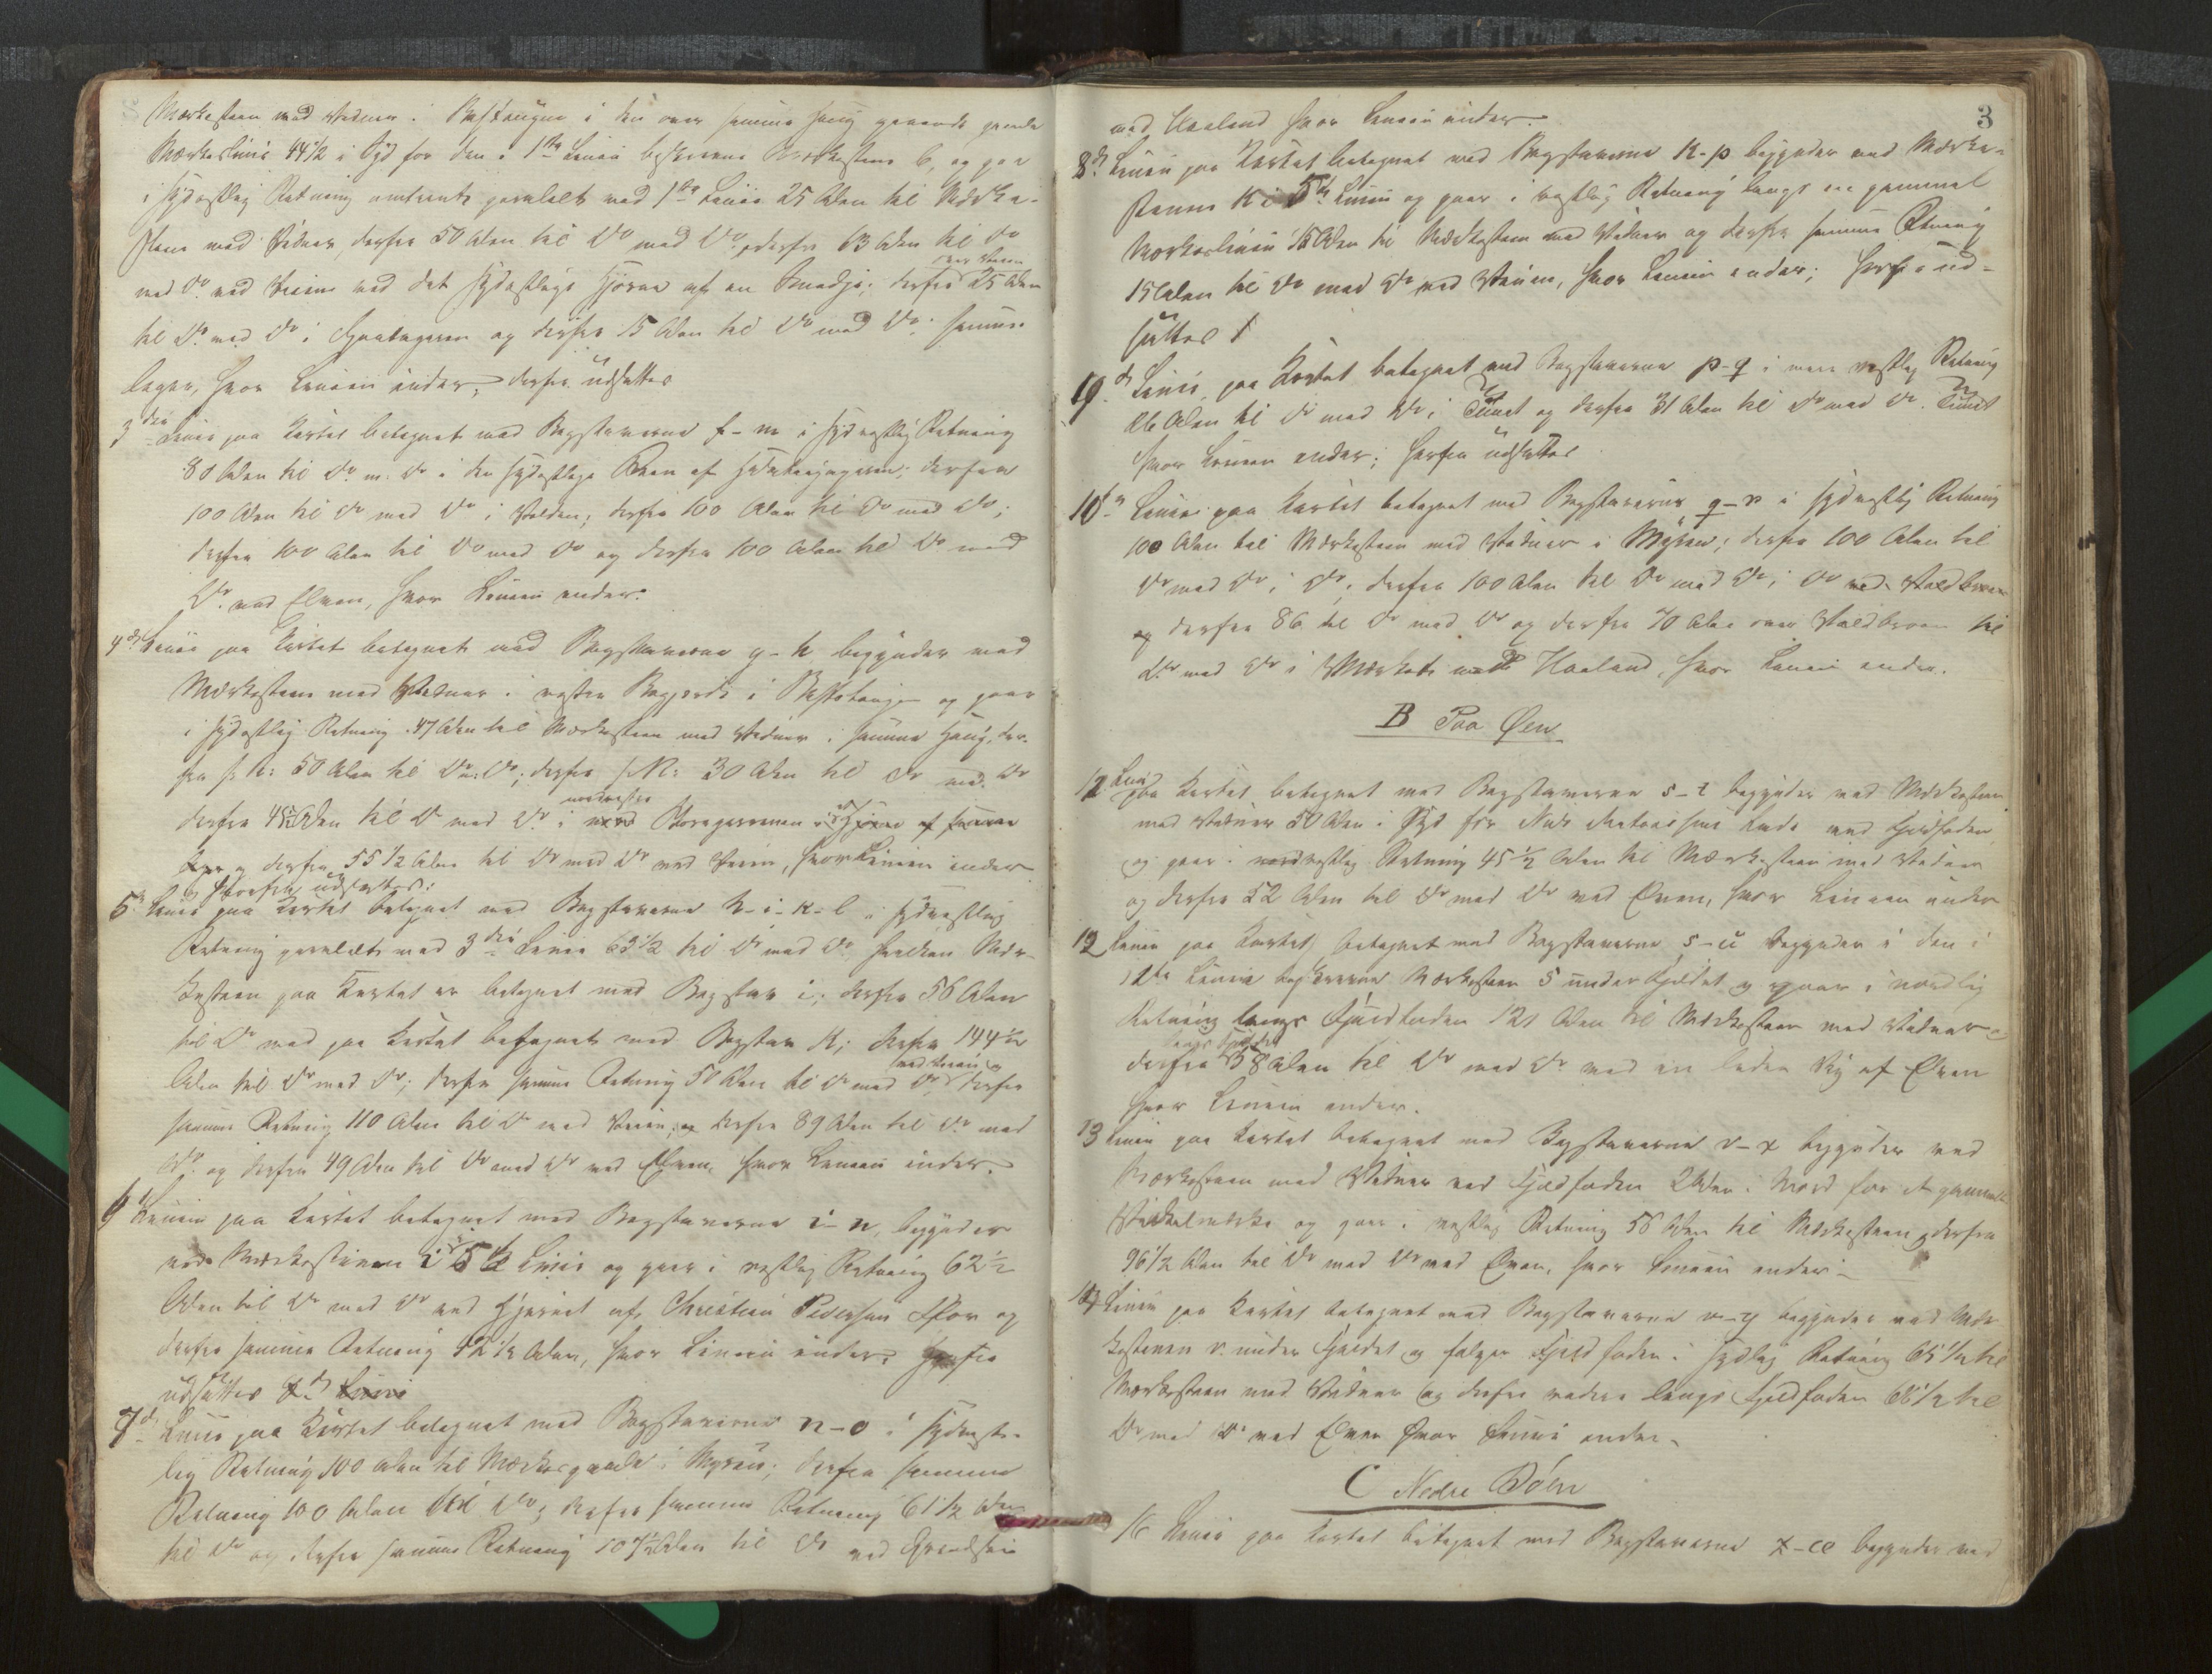 Mærkesteen med Vidner i i den over samme gaaende gamle
Mærkeslinie 44 1/2 i Syd for den i 1ste Linie beskrevne Mærkesteen b, og gaar
i sydostlig Retning omtrent paralelt med 1ste Linie 25 Alen til Mærke-
steen med Vidner, derfra 50 Alen til Do med Do, derfra 63 Alen til Do
med Do ved Veien ved det sydostlige Hjørne af en Smedje; derfra over Veien 25 Alen
til Do med Do i og derfra 15 Alen til Do med Do i samme
Ager, hvor Linien ender; derfra udsattes
3die Linie paa Kartet betegnet med Bogstaverne f-m i sydvestlig Retning
80 Alen til Do m. Do i den sydostlige af derfra
100 Alen til Do med Do i Volden; derfra 100 Alen til Do med Do;
derfra 100 Alen til Do med Do og derfra 100 Alen til Do med
Do ved Elven, hvor Linien ender.
4de Linie paa Kartet betegnet med Bogstaverne g-h begynder med
Mærkesteen med Vidner i vestre i og gaar
i sydostlig Retning 47 Alen til Mærkesteen med Vidner i samme Haug, der-
fra s: R: 50 Alen til Do: Do; derfra s: R: 30 Alen til Do med Do
derfra 45 1/2 Alen til Do med Do i nordvestre Hjørne af samme
og derfra 55 1/2 Alen til Do med Do ved Veien, hvor Linien ender
Herfra udsattes:
5te Linie paa Kartet betegnet med Bogstaverne h-i-k-l i sydvestlig
Retning paralelt med 3die Linie 63 1/2 til Do med Do, hvilken Mær-
kesteen paa Kartet er betegnet med Bogstav i; derfra 56 Alen
til Do med paa Kartet betegnet med Bogstav K; derfra 144 1/2
Alen til Do med Do; derfra samme Retning 50 Alen til Do med Do ved Veien og derfra
samme Retning 110 Alen til Do ved Veien, og derfra 89 Alen til Do med
Do og derfra 49 Alen til Do med Do ved Elven, hvor Linien ender.
6 Linie paa Kartet betegnet med Bogstaverne i-n, begynder
ved Mærkestenen i i 5te Linie og gaar i vestlig Retning 62 1/2
Alen til Do med Do ved Hjørnet af Christian Pedersens og
derfra samme Retning 42 1/2 Alen, hvor Linien ender. Herfra
udsattes
7de Linie paa Kartet betegnet med Bogstaverne n-o i sydvest-
lig Retning 100 Alen til i Myren; derfra samme
Retning 100 Alen til Do; derfra samme Retning 61 1/2 Alen
til Do og derfra samme Retning 107 1/2 Alen til Do ved
3
med Haaland hvor Linien ender.
8de Linie paa Kartet betegnet med Bogstaverne K-p begynder ved Mærke-
stenen K i 5te Linie og gaar i vestlig Retning langs en gammel
Mærkeslinie 15 Alen til Mærkesteen med Vidner og derfra samme Retning
15 Alen til Do med Do ved Veien, hvor Linien ender; herfra ud-
sattes
9de Linie, paa Kartet betegnet med Bogstaverne p-q i mere vestlig Retning
26 Alen til Do med Do i Tunet og derfra 31 Alen til Do med Do i Tunet
hvor Linien ender; herfra udsattes
10de Linie paa Kartet betegnet med Bogstaverne q-r i sydvestlig Retning
100 Alen til Mærkesteen med Vidner i Myren; derfra 100 Alen til
Do med Do i Do; derfra 100 Alen til Do med Do i Do
og derfra 86 til Do med Do og derfra 70 Alen over til
Do med Do i Mærket med Haaland, hvor Linien ender.
B Paa Øen
12 Linie paa Kartet betegnet med Bogstaverne s-t begynder ved Mærkesteen
med Vidner 50 Alen i Syd for ved Fjeldfoden
og gaar i nordvestlig Retning 45 1/2 Alen til Mærkesteen med Vidner
og derfra 52 Alen til Do med Do ved Elven, hvor Linien ender
12 Linie paa Kartet betegnet med Bogstaverne s-u begynder i den i
1ste Linie beskrevne Mærkesteen s under Fjeldet og gaar i nordlig
Retning langs Fjeldfoden 121 Alen til Mærkesteen med Vidner og
derfra langs Fjeldet 58 Alen til Do med Do ved en liden Vig af Elven
hvor Linien ender.
13 Linie paa Kartet betegnet med Bogstaverne v-x begynder ved
Mærkesteen med Vidner ved Fjeldfoden 2 Alen i Nord for et gammelt
og gaar i vestlig Retning 56 Alen til Mærkesteen og derfra
96 1/2 Alen til Do med Do ved Elven, hvor Linien ender
14 Linie paa Kartet betegnet med Bogstaverne v-y begynder ved Mær-
kestenen v under Fjeldet og følger Fjeldfoden i sydlig Retning 65 1/2 til
Mærkesteen med Vidner og derfra videre langs Fjeldfoden 66 1/2 til
Do med Do ved Elven hvor Linien ender.
C Nedre Døln
16 Linie paa Kartet betegnet med Bogstaverne z-æ begynder ved